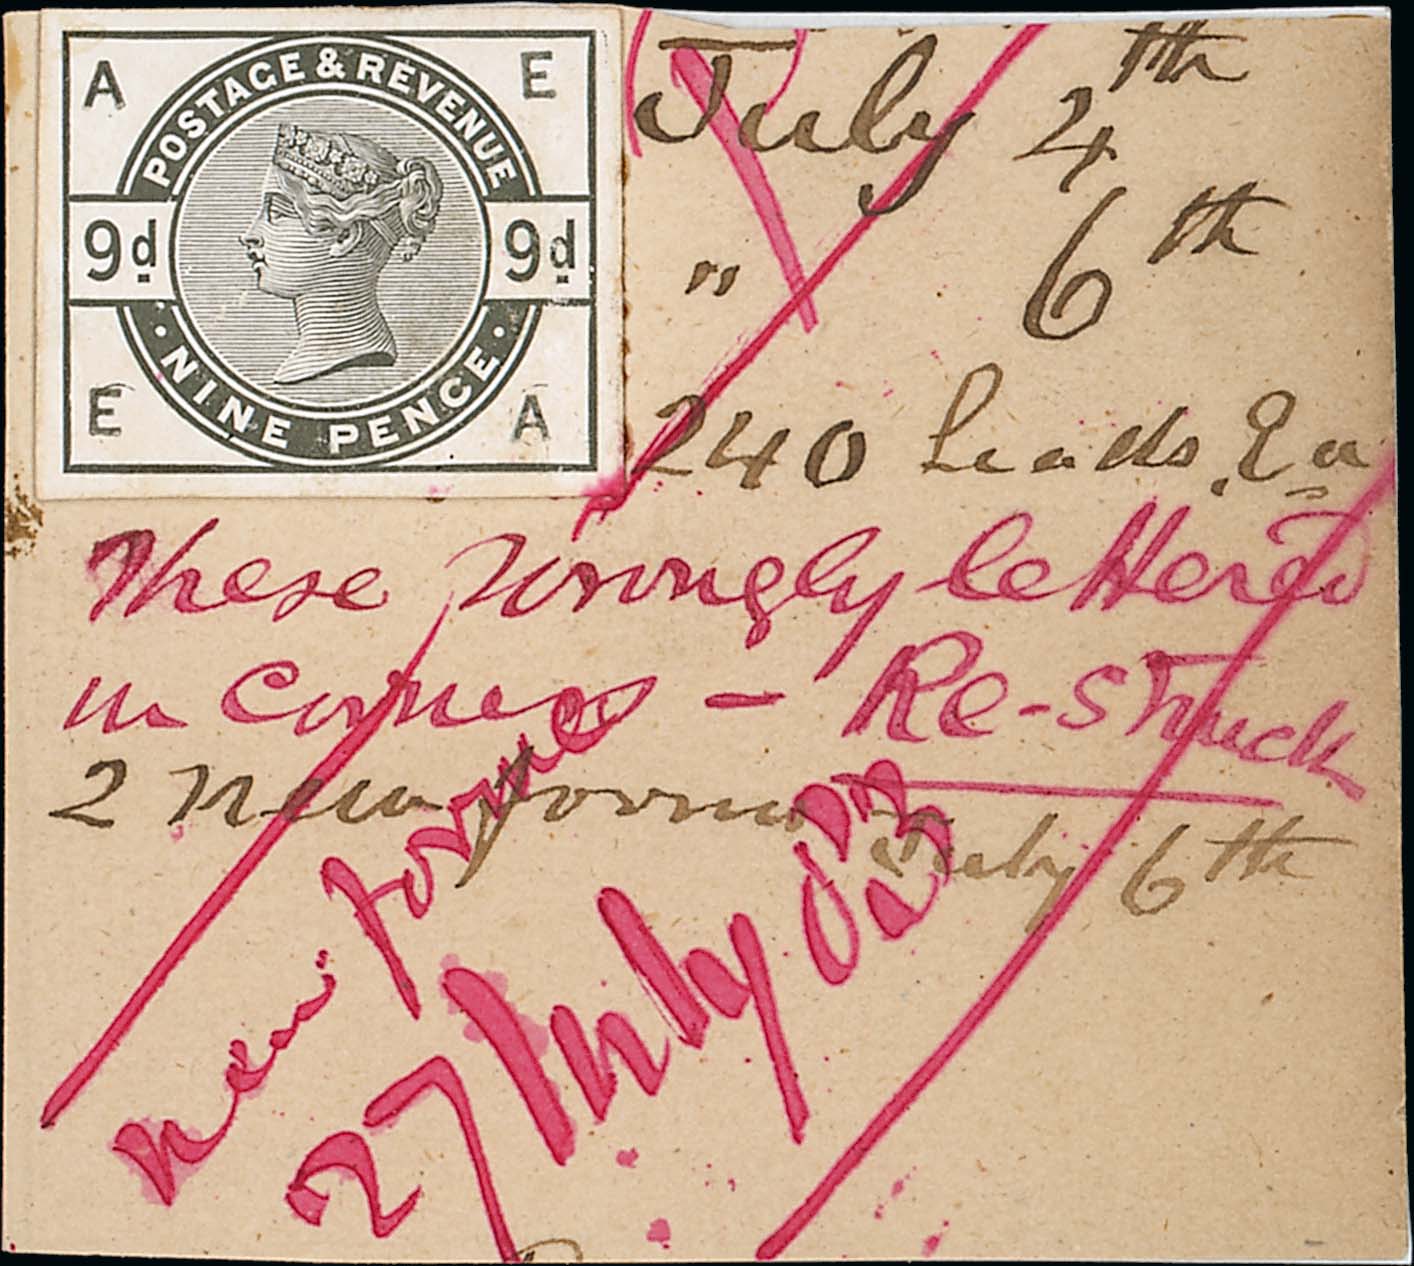 A E
POSTAGE & REVENUE
9d 9d
NINE PENCE
E A
July 4th
" 6th
240 Leads. Ea
These wrongly lettered
in Corners - Re-struck
2 new forms July 6th
new forme
27 July 83